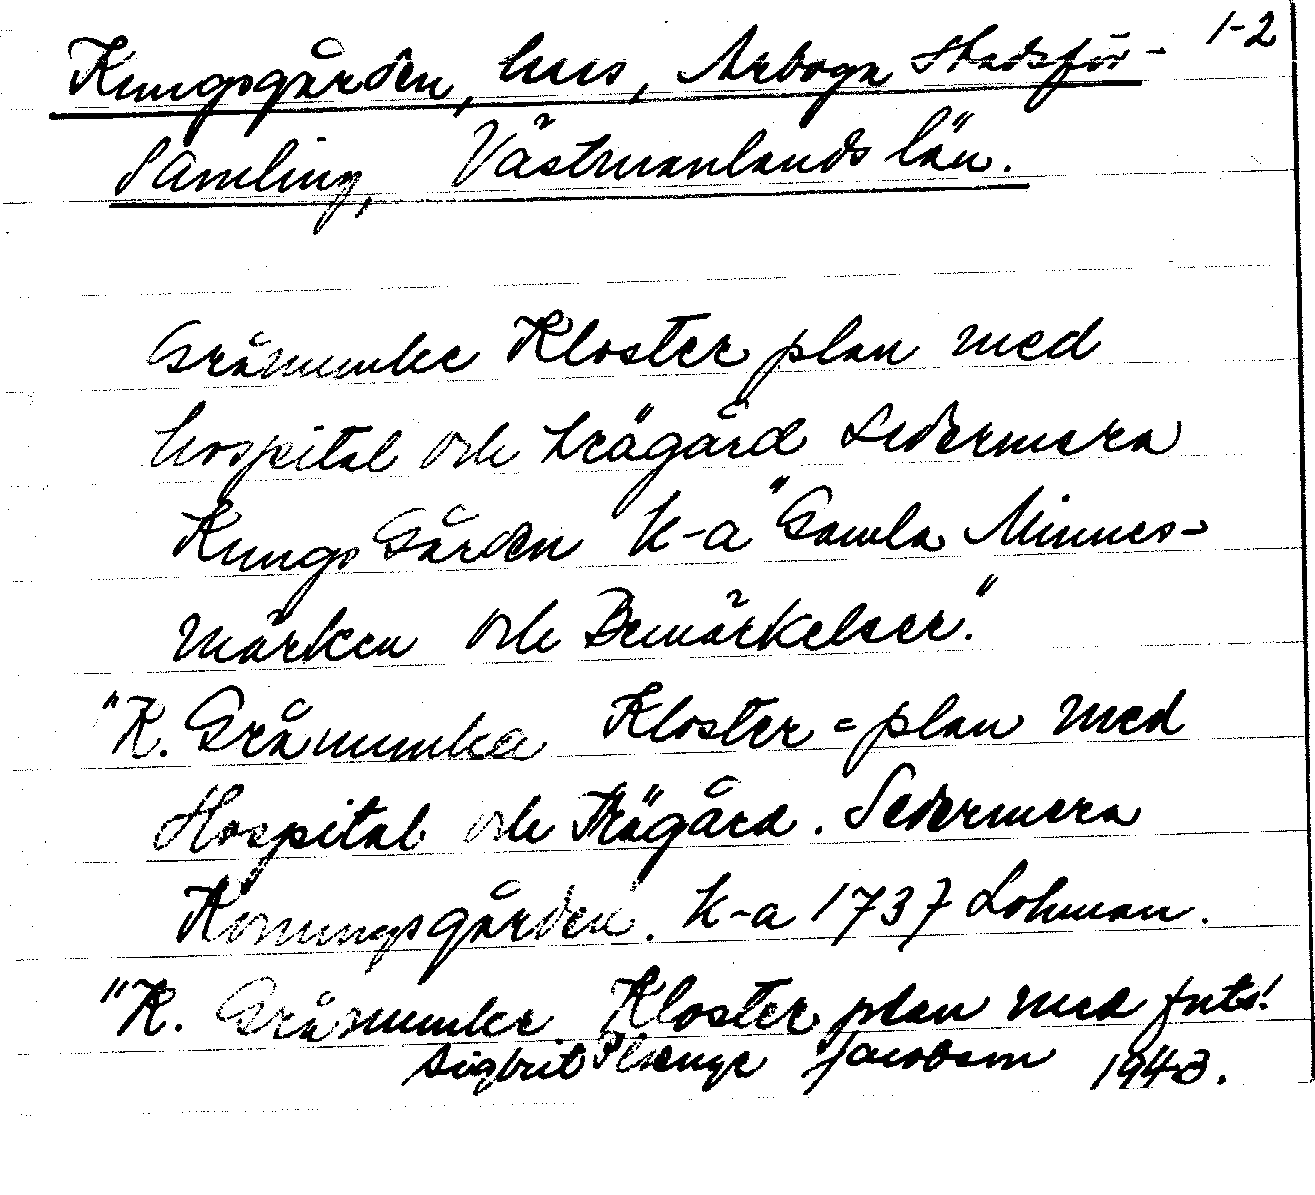 1-2
Kungsgården, hus, Arboga Stadsför-
samling, Västmanlands län.
Gråmunke Kloster plan med
hospital och trägård sedermera
Kungs Gården k-a "Gamla Minnes-
märken och Bemärkelser."
"K. Gråmunka Kloster=plan med
Hospital och Trägård. Sedermera
Konungsgården. k-a 1737 Lohman.
"K. Gråmunke Kloster plan med forts!
Sigbrit Plænge Jacobson 1943.